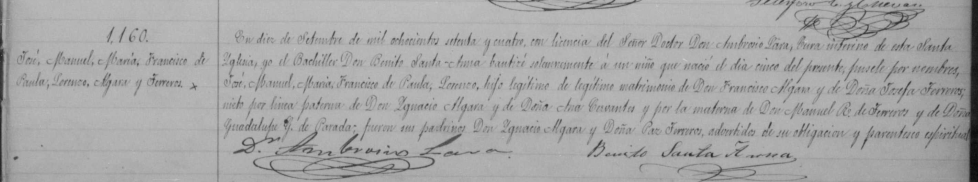 1,160.
José, Manuel, María, Francisco de
Paula, Lorenzo, Algara y Ferreros
En diez de Setembre de mil ochocientos setenta y cuatro, con licencia del Señor Doctor Don Ambrosio Lara, Cura interino de esta Santa
Iglesia, yo el Bachiller Don Benito Santa-Anna bautizé solemnemente á un niño que nació el dia cinco del presente, púsele por nombres,
José, Manuel, María, Francisco de Paula, Lorenzo, hijo legítimo de legítimo matrimonio de Don Francisco Algara y de Doña Josefa Ferreros;
nieto por linea paterna de Don Ignacio Algara y de Doña Ana Cervantes y por la materna de Don Manuel R. de Ferreros y de Doña
Guadalupe G. de Parada; fueron sus padrinos Don Ignacio Algara y Doña Paz Ferreros, advertidos de su obligacion y parentesco espiritual.
Dr. Ambrosio Lara. Benito Santa Anna.